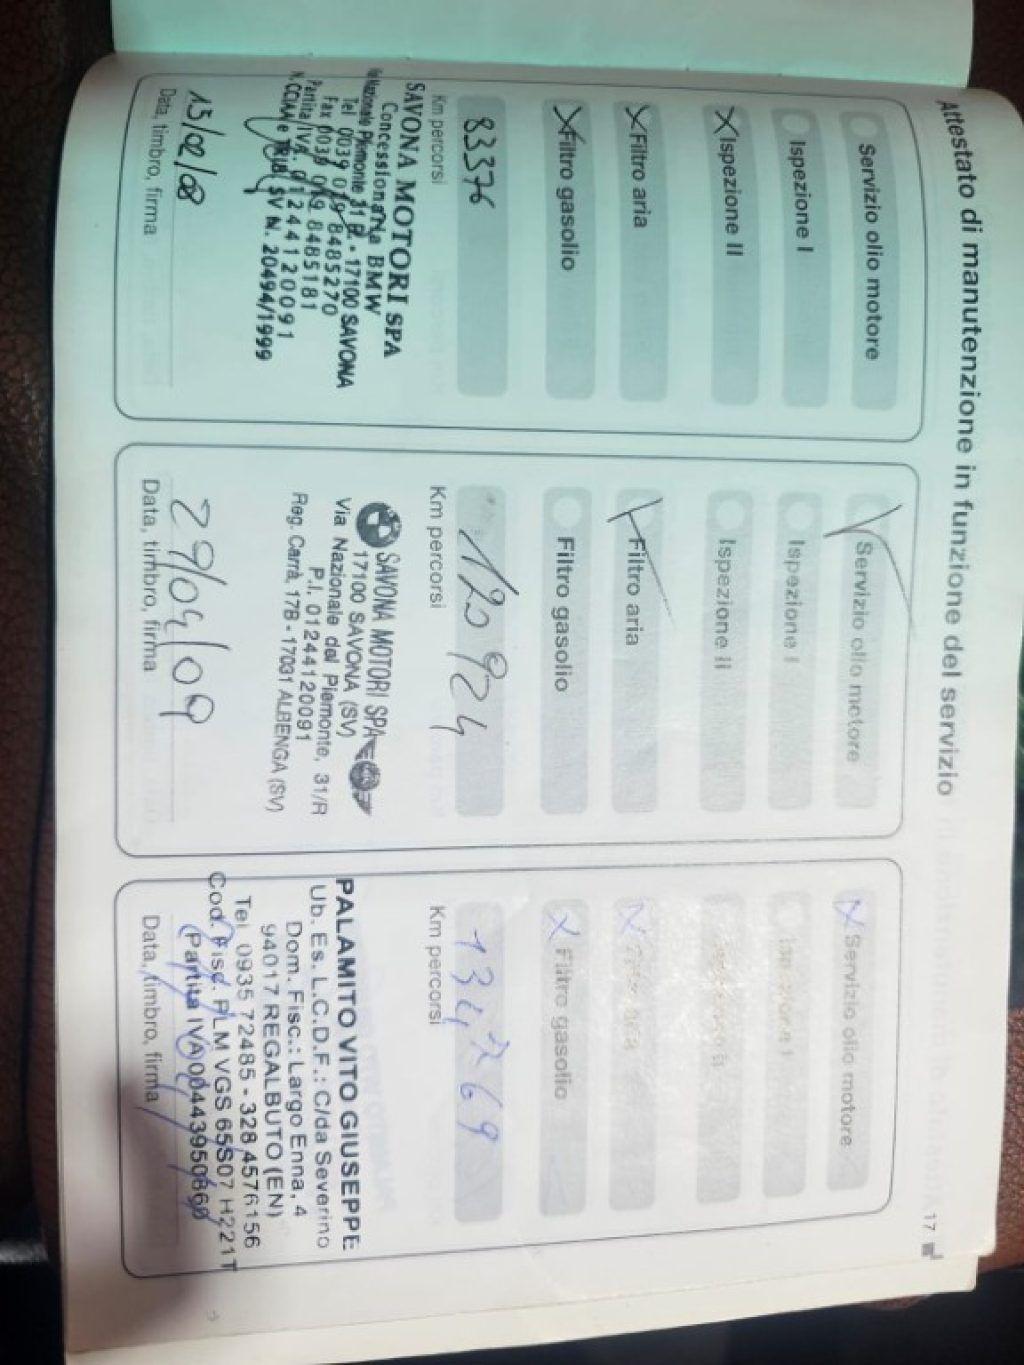 Attestato di manutenzione in funzione del servizio
17
Servizio olio motore
Ispezione I
X Ispezione II
X Filtro aria
X Filtro gasolio
83376
Km percorsi
SAVONA MOTORI SPA
Concessionaria BMW
Via Nazionale Piemonte 31 R. - 17100 SAVONA
Tel 0039 019 8485270
Fax 0039 019 8485181
Partita IVA. 01244120091
N. CCIAA e TRIB. SV N. 20494/1999
15/02/08
Data, timbro, firma
Servizio olio motore
Ispezione I
Ispezione II
Filtro aria
Filtro gasolio
120924
Km percorsi
SAVONA MOTORI SPA
17100 SAVONA (SV)
Via Nazionale del Piemonte, 31/R
P.I. 01244120091
Reg. Carrà, 17B - 17031 ALBENGA (SV)
29/04/09
Data, timbro, firma
X Servizio olio motore
Ispezione I
Ispezione II
X Filtro aria
X Filtro gasolio
134769
Km percorsi
PALAMITO VITO GIUSEPPE
Ub. Es. L.C.D.F.: C/da Severino
Dom. Fisc.: Largo Enna, 4
94017 REGALBUTO (EN)
Tel 0935 72485 - 328 4576156
Cod. Fisc. PLM VGS 65S07 H221T
Partita IVA 00443950860
Data, timbro, firma